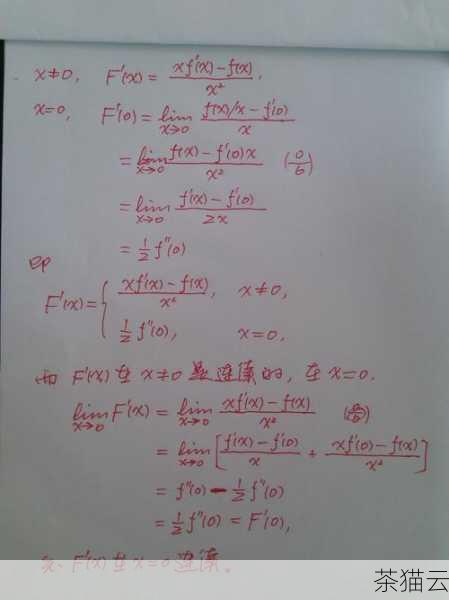 x≠0, F'(x) = (xf'(x)-f(x))/x²,
x=0, F'(0) = lim_{x→0} (f(x)/x - f'(0))/x
= lim_{x→0} (f(x)-f'(0)x)/x² (0/0)
= lim_{x→0} (f'(x)-f'(0))/2x
= 1/2 f''(0)
即
F'(x) = { (xf'(x)-f(x))/x², x≠0,
1/2 f''(0), x=0,
而 F'(x) 在 x≠0 是连续的, 在 x=0,
lim_{x→0} F'(x) = lim_{x→0} (xf'(x)-f(x))/x² (0/0)
= lim_{x→0} [(f'(x)-f'(0))/x + (xf'(0)-f(x))/x²]
= f''(0) - 1/2 f''(0)
= 1/2 f''(0) = F'(0),
F'(x) 在 x=0 连续。
茶猫云